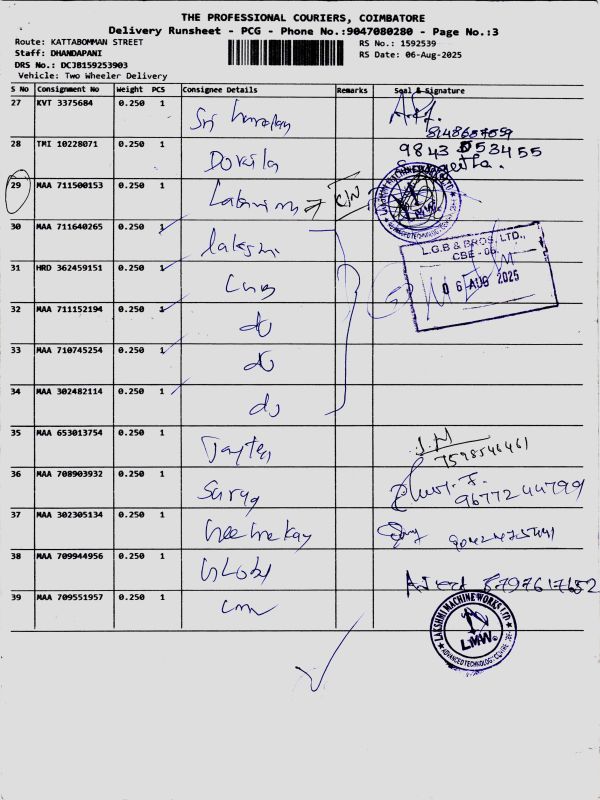 THE PROFESSIONAL COURIERS, COIMBATORE
Delivery Runsheet - PCG - Phone No.:9047080280 - Page No.:3
Route: KATTABOMMAN STREET
RS No.: 1592539
Staff: DHANDAPANI
RS Date: 06-Aug-2025
DRS No.: DCJB159253903
Vehicle: Two Wheeler Delivery
S No Consignment No Weight PCS Consignee Details Remarks Seal & Signature
27 KVT 3375684 0.250 1 Sri
8148657059
28 TMI 10228071 0.250 1
9843 553455
29 MAA 711500153 0.250 1
LAKSHMI MACHINE WORKS LTD
LMW
30 MAA 711640265 0.250 1 lakshmi
L.G.B & BROS. LTD.,
CBE - 06.
06 AUG 2025
31 HRD 362459151 0.250 1
32 MAA 711152194 0.250 1 do
33 MAA 710745254 0.250 1 do
34 MAA 302482114 0.250 1 do
35 MAA 653013754 0.250 1
7598546461
36 MAA 708903932 0.250 1 Surya
9677244799
37 MAA 302305134 0.250 1
38 MAA 709944956 0.250 1
8797617652
39 MAA 709551957 0.250 1
LAKSHMI MACHINE WORKS LTD
LMW